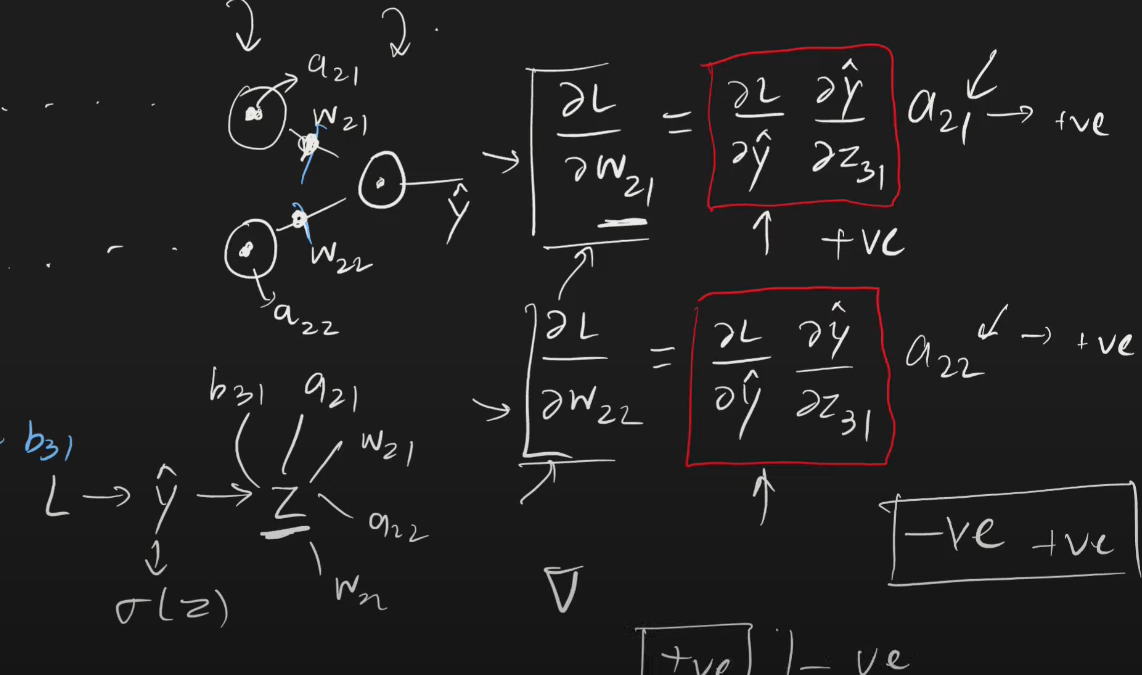 a₂₁
w₂₁
Ŷ
w₂₂
a₂₂
∂L/∂w₂₁ = ∂L/∂Ŷ ∂Ŷ/∂z₃₁ a₂₁ → +ve
↑ +ve
∂L/∂w₂₂ = ∂L/∂Ŷ ∂Ŷ/∂z₃₁ a₂₂ → +ve
b₃₁ a₂₁
b₃₁
w₂₁
L → Ŷ → Z
a₂₂
σ(z)
w₂₂
∇
-ve +ve
+ve | - ve